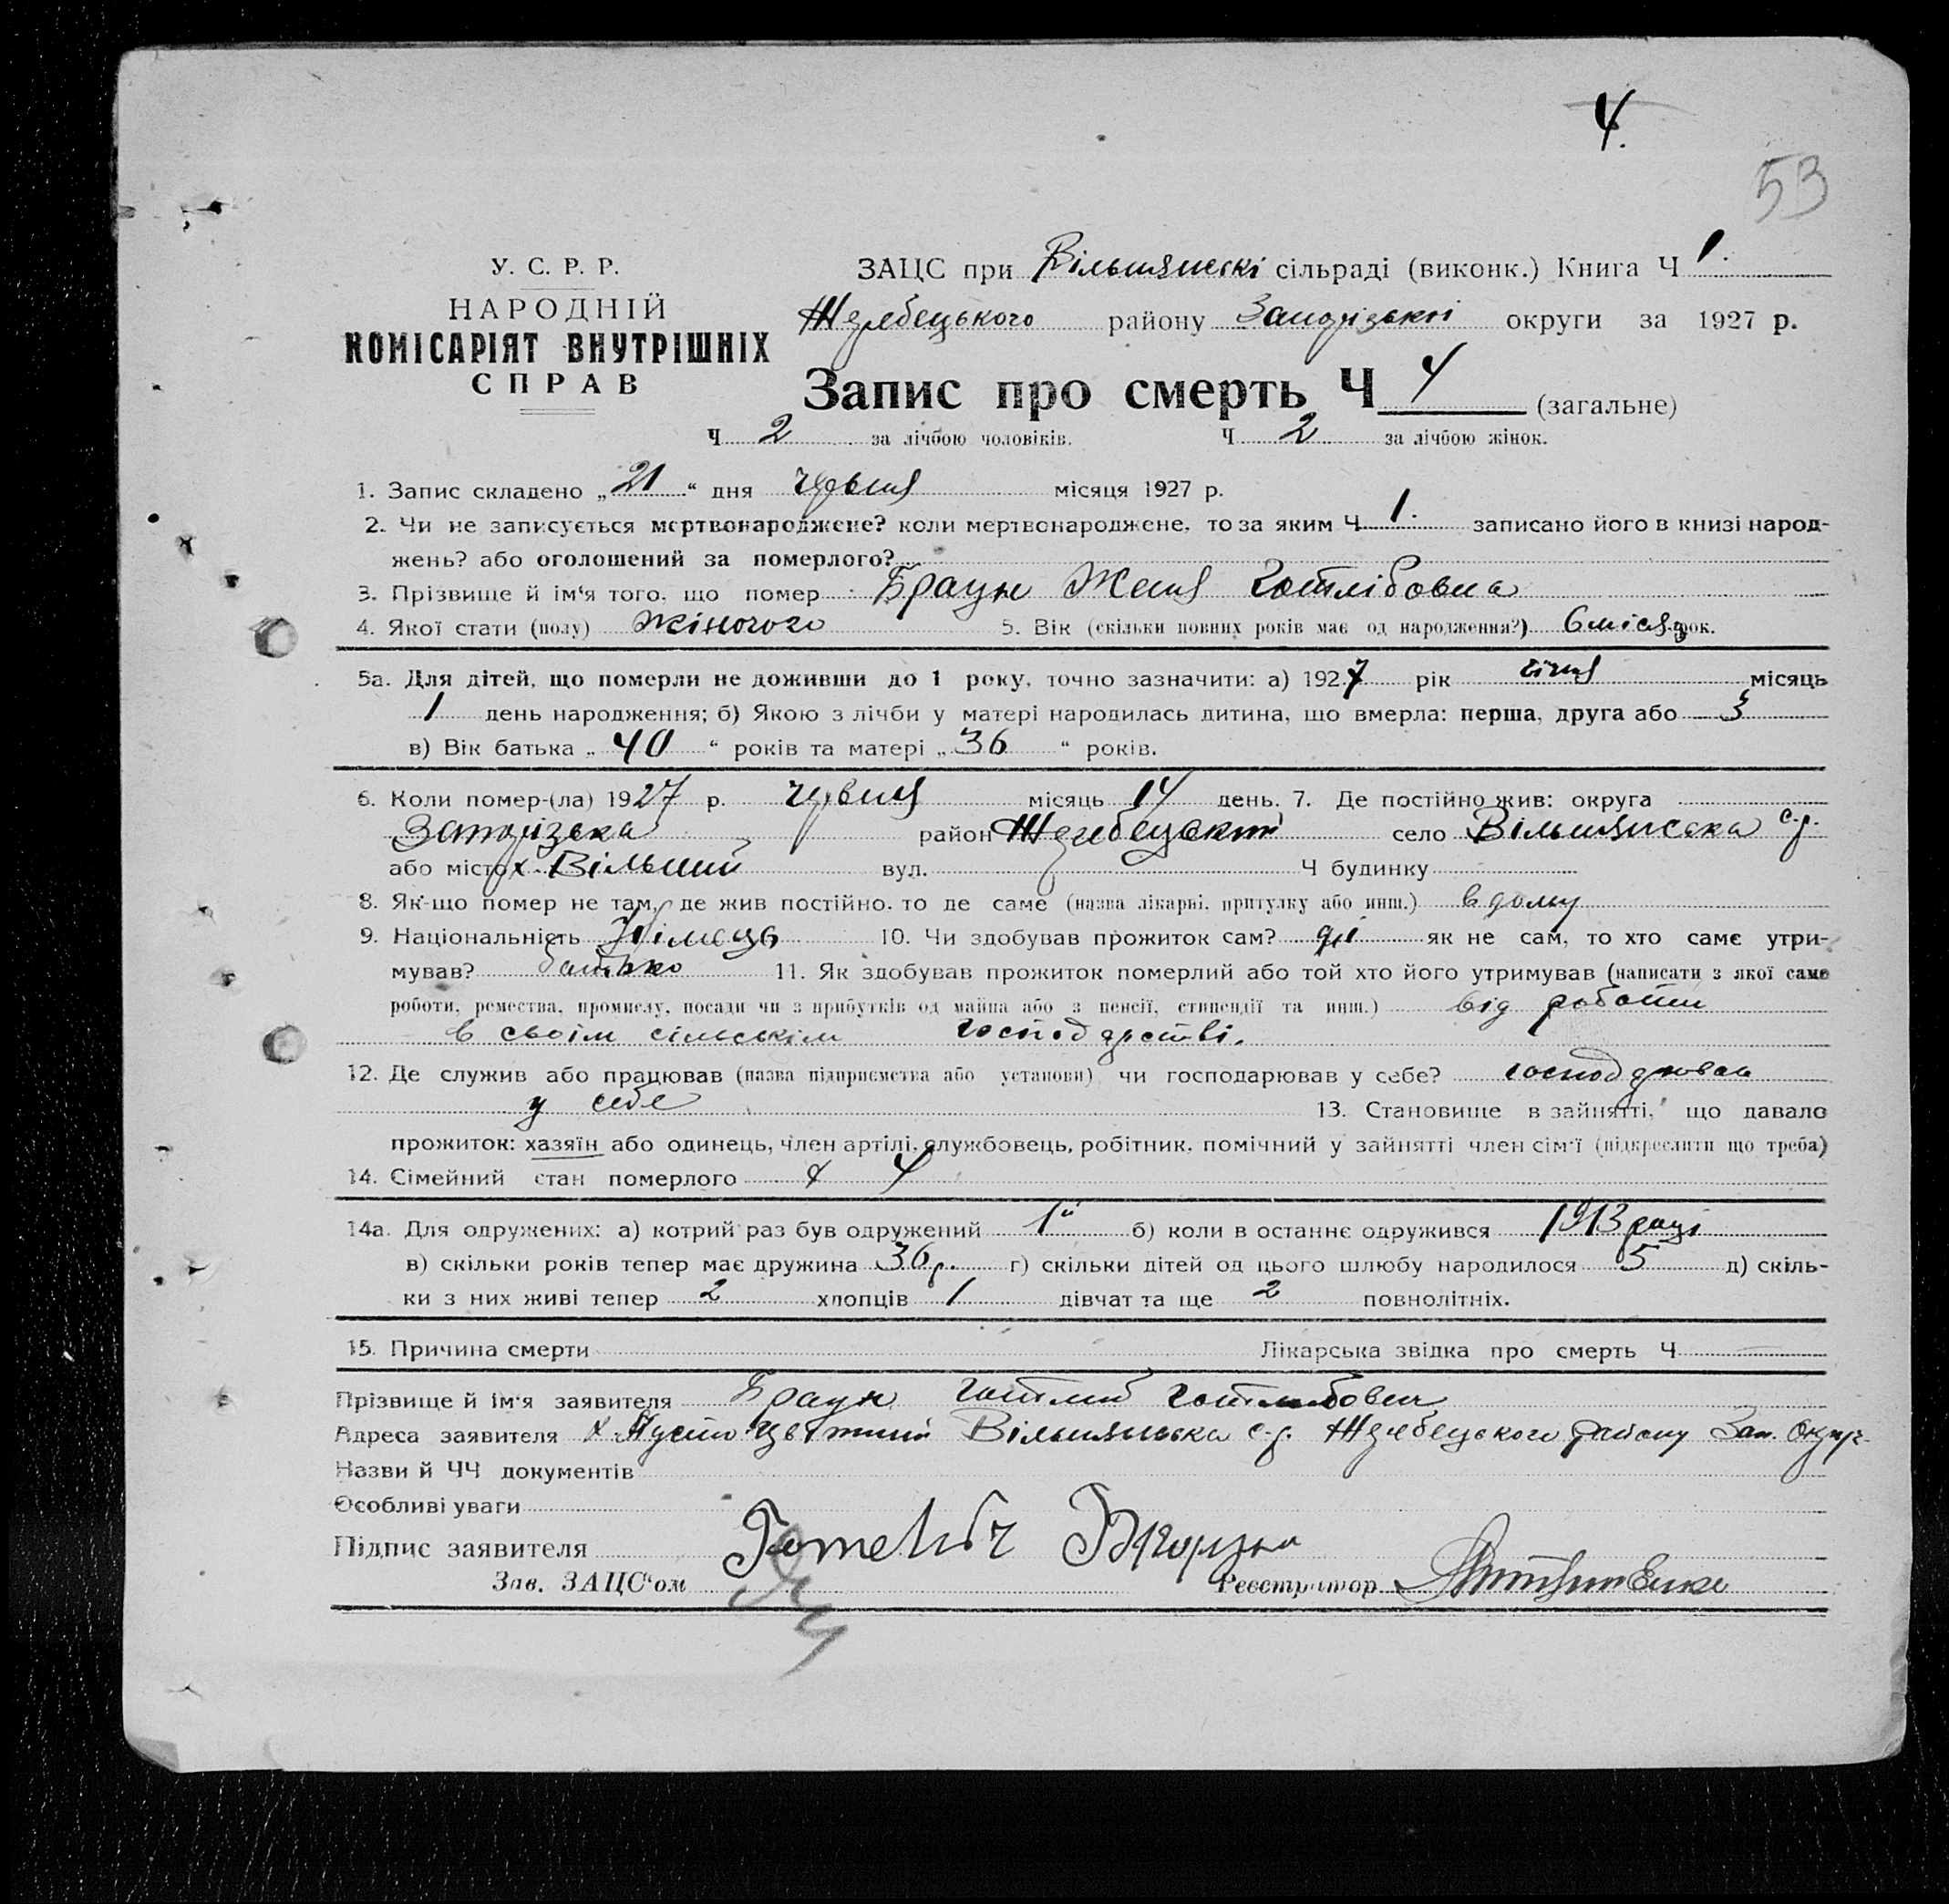 4.
53
У. С. Р. Р.
НАРОДНІЙ
КОМІСАРІЯТ ВНУТРІШНІХ
СПРАВ
ЗАЦС при Вільшанскі сільраді (виконк.) Книга Ч 1.
Жеребецького району Запорізької округи за 1927 р.
Запис про смерть Ч 4 (загальне)
Ч 2 за лічбою чоловіків. Ч 2 за лічбою жінок.
1. Запис складено „21“ дня червня місяця 1927 р.
2. Чи не записується мертвонароджене? коли мертвонароджене, то за яким Ч 1. записано його в книзі народ-
жень? або оголошений за померлого?
3. Прізвище й ім'я того, що помер Браун Женя Готлібовна
4. Якої стати (полу) жіночого 5. Вік (скільки повних років має од народження?) 6 місяц. рок.
5а. Для дітей, що померли не доживши до 1 року, точно зазначити: а) 1927 рік січня місяць
1 день народження; б) Якою з лічби у матері народилась дитина, що вмерла: перша, друга або 3
в) Вік батька „40“ років та матері „36“ років.
6. Коли помер-(ла) 1927 р. червня місяць 14 день. 7. Де постійно жив: округа
Запорізька район Жеребецький село Вільшянська с.р.
або місто х. Вільний вул. Ч будинку
8. Як-що помер не там, де жив постійно, то де саме (назва лікарні, притулку або инш.) в дому
9. Національність Німець 10. Чи здобував прожиток сам? як не сам, то хто саме утри-
мував? батько 11. Як здобував прожиток померлий або той хто його утримував (написати з якої саме
роботи, ремества, промислу, посади чи з прибутків од майна або з пенсії, стипендії та инш.) від роботи
в своїм сільськім господарстві.
12. Де служив або працював (назва підприємства або установи) чи господарював у себе? господарював
у себе 13. Становище в зайнятті, що давало
прожиток: хазяїн або одинець, член артілі, службовець, робітник, помічний у зайнятті член сім'ї (підкреслити що треба)
14. Сімейний стан померлого
14а. Для одружених: а) котрий раз був одружений 1й б) коли в останнє одружився 1913 році
в) скільки років тепер має дружина 36 р. г) скільки дітей од цього шлюбу народилося 5 д) скіль-
ки з них живі тепер 2 хлопців 1 дівчат та ще 2 повнолітніх.
15. Причина смерти Лікарська звідка про смерть Ч
Прізвище й ім'я заявителя Браун Готлиб Готлибович
Адреса заявителя х. Вільшянська с.р. Жеребецького району Зап. Округ.
Назви й ЧЧ документів
Особливі уваги
Підпис заявителя
Зав. ЗАЦС'ом Реєстратор